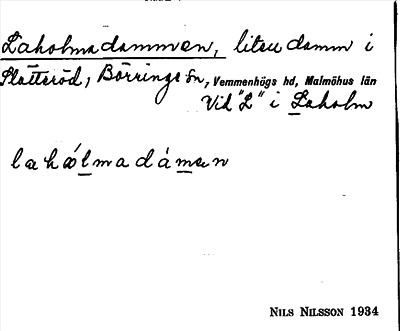 Laholmadammen, liten damm i
Slätteröd, Börringe sn, Vemmenhögs hd, Malmöhus län
Vid "L" i Laholm
lahålmadámən
NILS NILSSON 1934